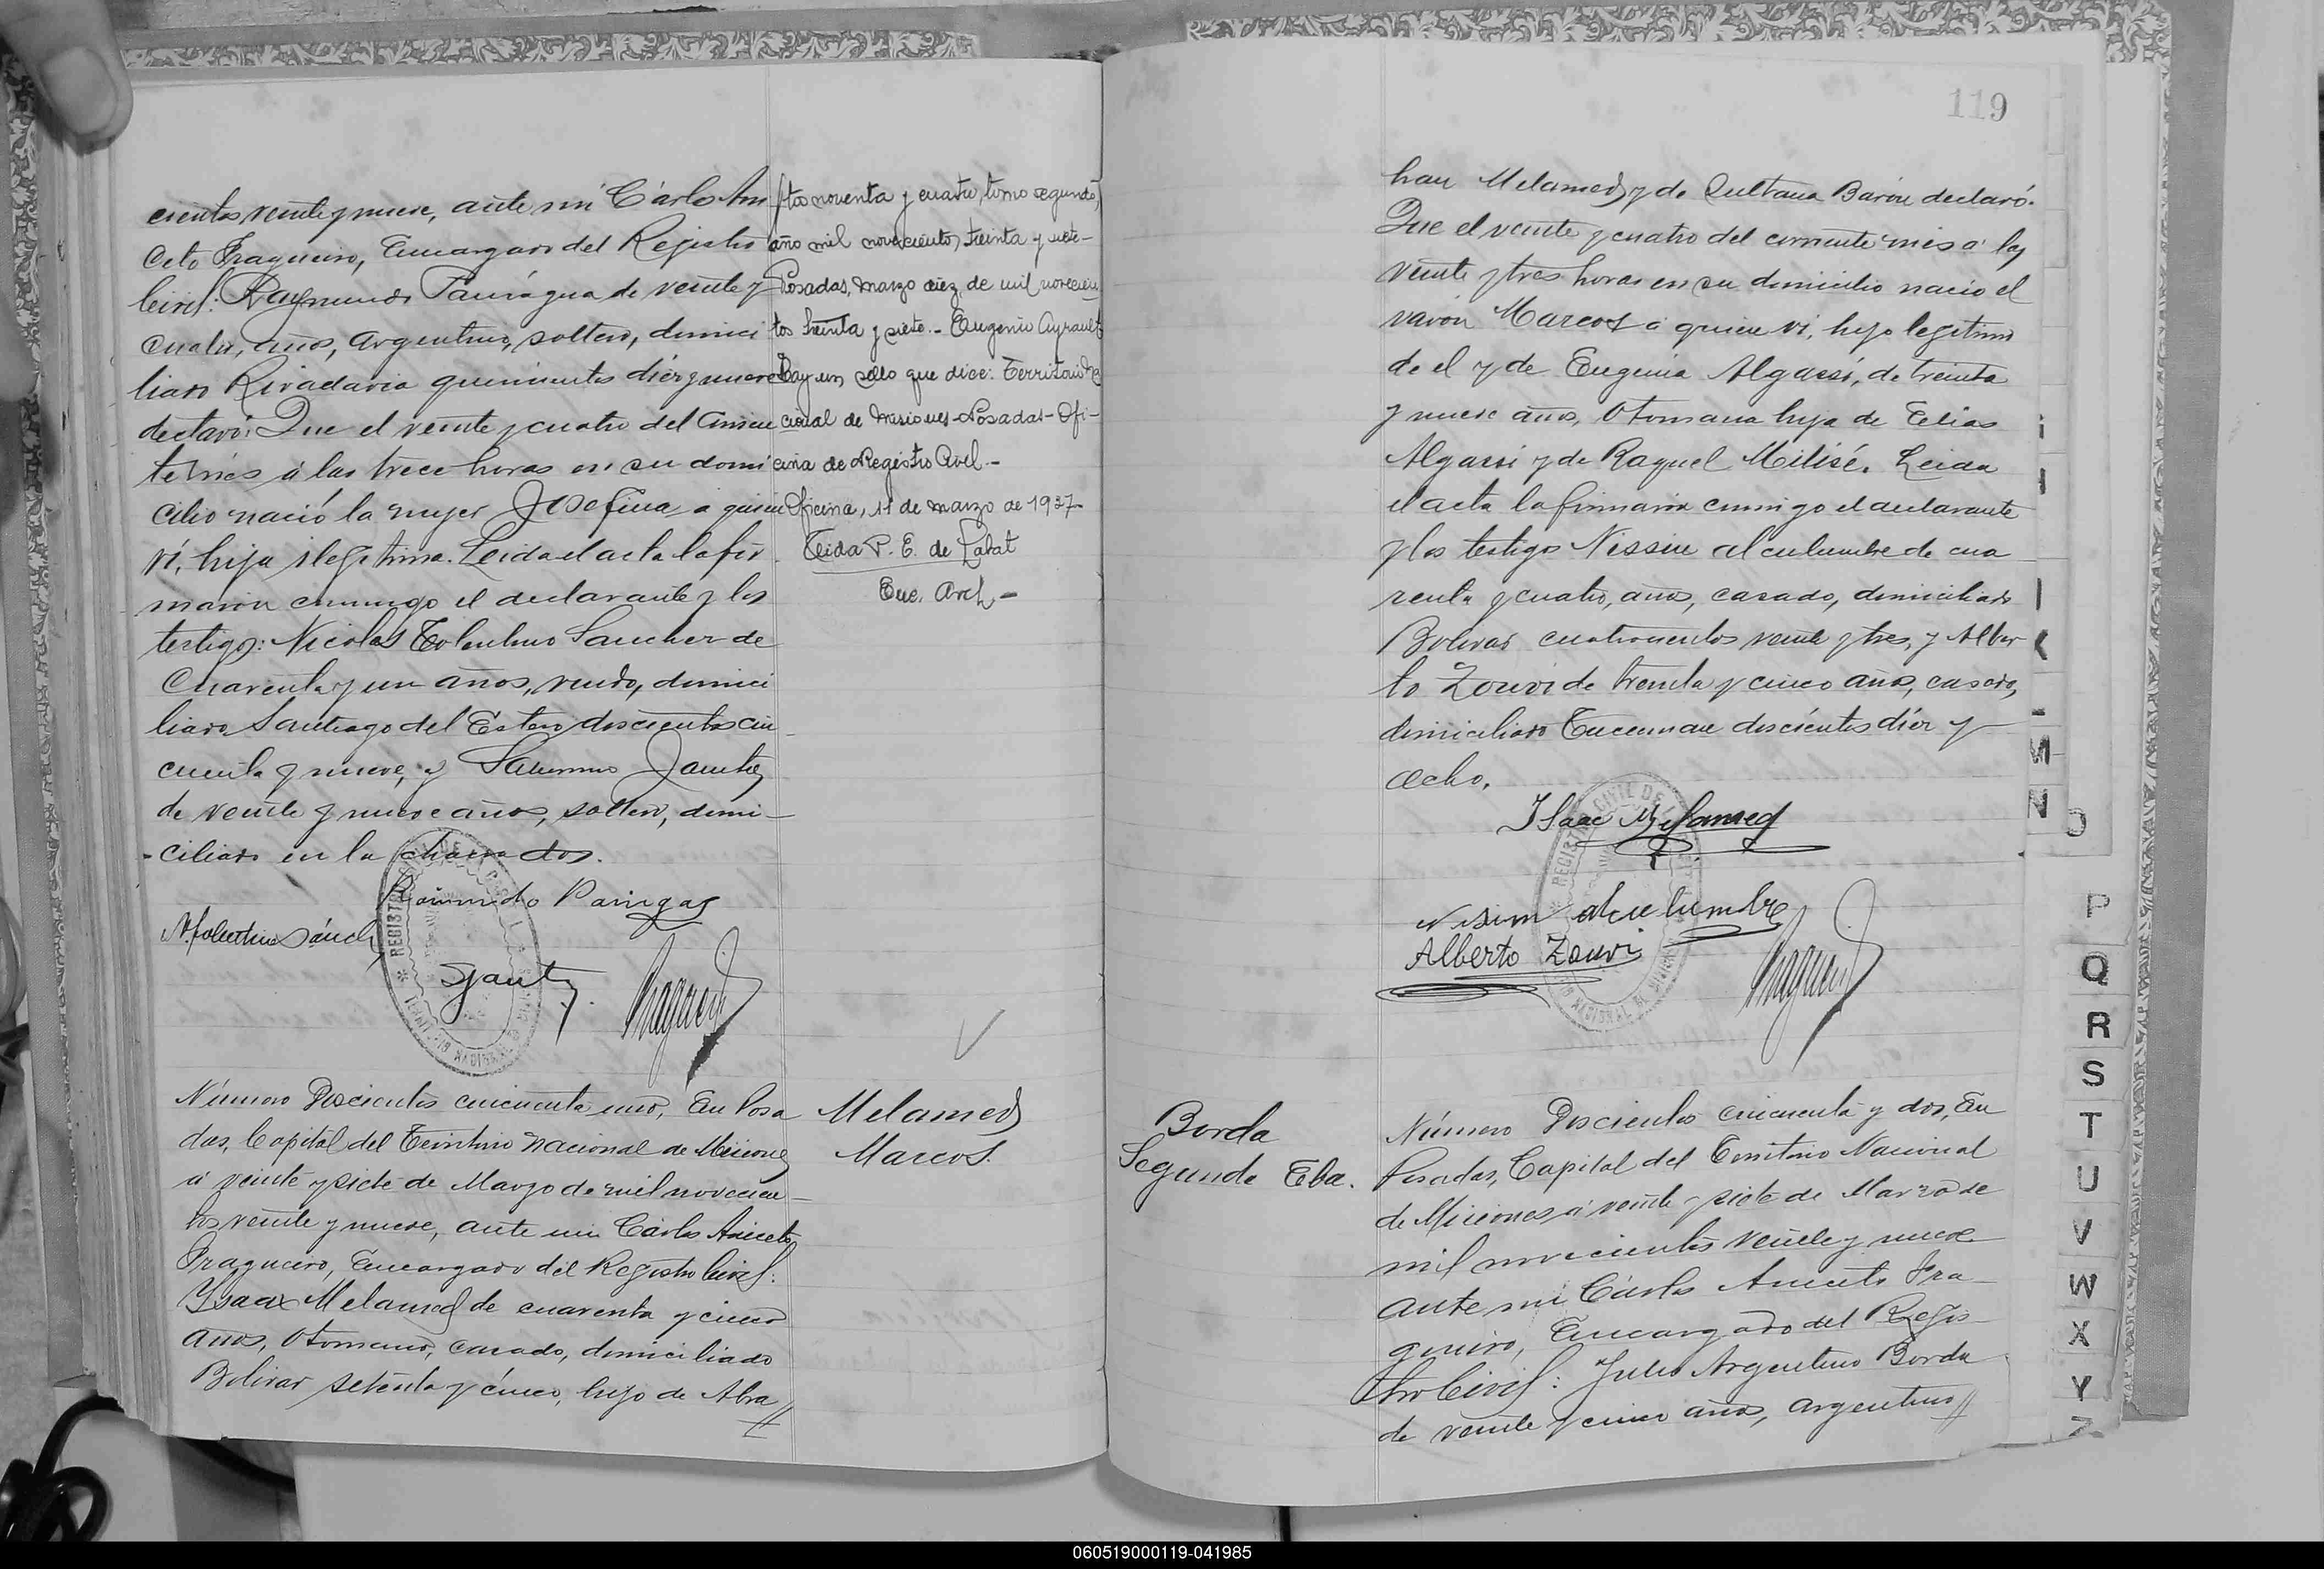 cientos veinte y nueve, ante mí Cárlos Ani
ceto Fragueiro, Encargado del Registro
Civil: Raymundo Paniágua de veinte y
cuatro, años, argentino, soltero, domici
liado Rivadavia quinientos diez y nueve
declaró: Que el veinte y cuatro del corrien
te mes á las trece horas en su domi
cilio nació la mujer Josefina a quien
ví, hija ilegítima. Leida el acta la fir
maron conmigo el declarante y los
testigos: Nicolas Tolentino Sanchez de
cuarenta y un años, viudo, domici
liado Santiago del Estero doscientos cin
cuenta y nueve, y
de veinte y nueve años, soltero, domi-
ciliado en la chacra dos.
N. Tolentino Sánch
ftos noventa y cuatro, tomo segundo,
año mil novecientos treinta y siete-
Posadas, marzo diez de mil novecien
tos treinta y siete.- Eugenio Ayrault
Hay un sello que dice: Territorio Na
cional de Misiones-Posadas-Ofi-
cina de Registro Civil.-
Oficina, 11 de marzo de 1937-
P. E. de
Enc. Arch-
Número Doscientos cincuenta uno, En Posa
das, Capital del Territorio Nacional de Misiones
á veinte y siete de Marzo de mil novecien
tos veinte y nueve, ante mi Cárlos Aniceto
Fragueiro, Encargado del Registro Civil:
Ysaac Melamed de cuarenta y cinco
años, Otomano, casado, domiciliado
Bolivar setenta y cinco, hijo de Abra
Melamed
Marcos.
119
han Melamed y de Sultana Barón declaró.
Que el veinte y cuatro del corriente mes á las
veinte y tres horas en su domicilio nació el
varón Marcos a quien ví, hijo legítimo
de el y de Eugenia Algassi, de treinta
y nueve años, Otomana hija de Elias
Algassi y de Raquel Milisé. Leida
el acta la firmaron conmigo el declarante
y los testigos Nissin alculumbre de cua
renta y cuatro, años, casado, domiciliado
Bolivar cuatrocientos veinte y tres, y Alber
to Zouvi de treinta y cinco años, casado,
domiciliado Tucuman doscientos diez y
ocho.
Isaac Melamed
Nisim alculumbre
Alberto Zouvi
Borda
Segundo Eba.
Número Doscientos cincuenta y dos, En
Posadas, Capital del Territorio Nacional
de Misiones á veinte y siete de Marzo de
mil novecientos veinte y nueve
ante mi Cárlos Aniceto Fra
gueiro, Encargado del Regis
tro Civil: Julio Argentino Borda
de veinte y cinco años, argentino
M
N
O
P
Q
R
S
T
U
V
W
X
Y
Z
060519000119-041985